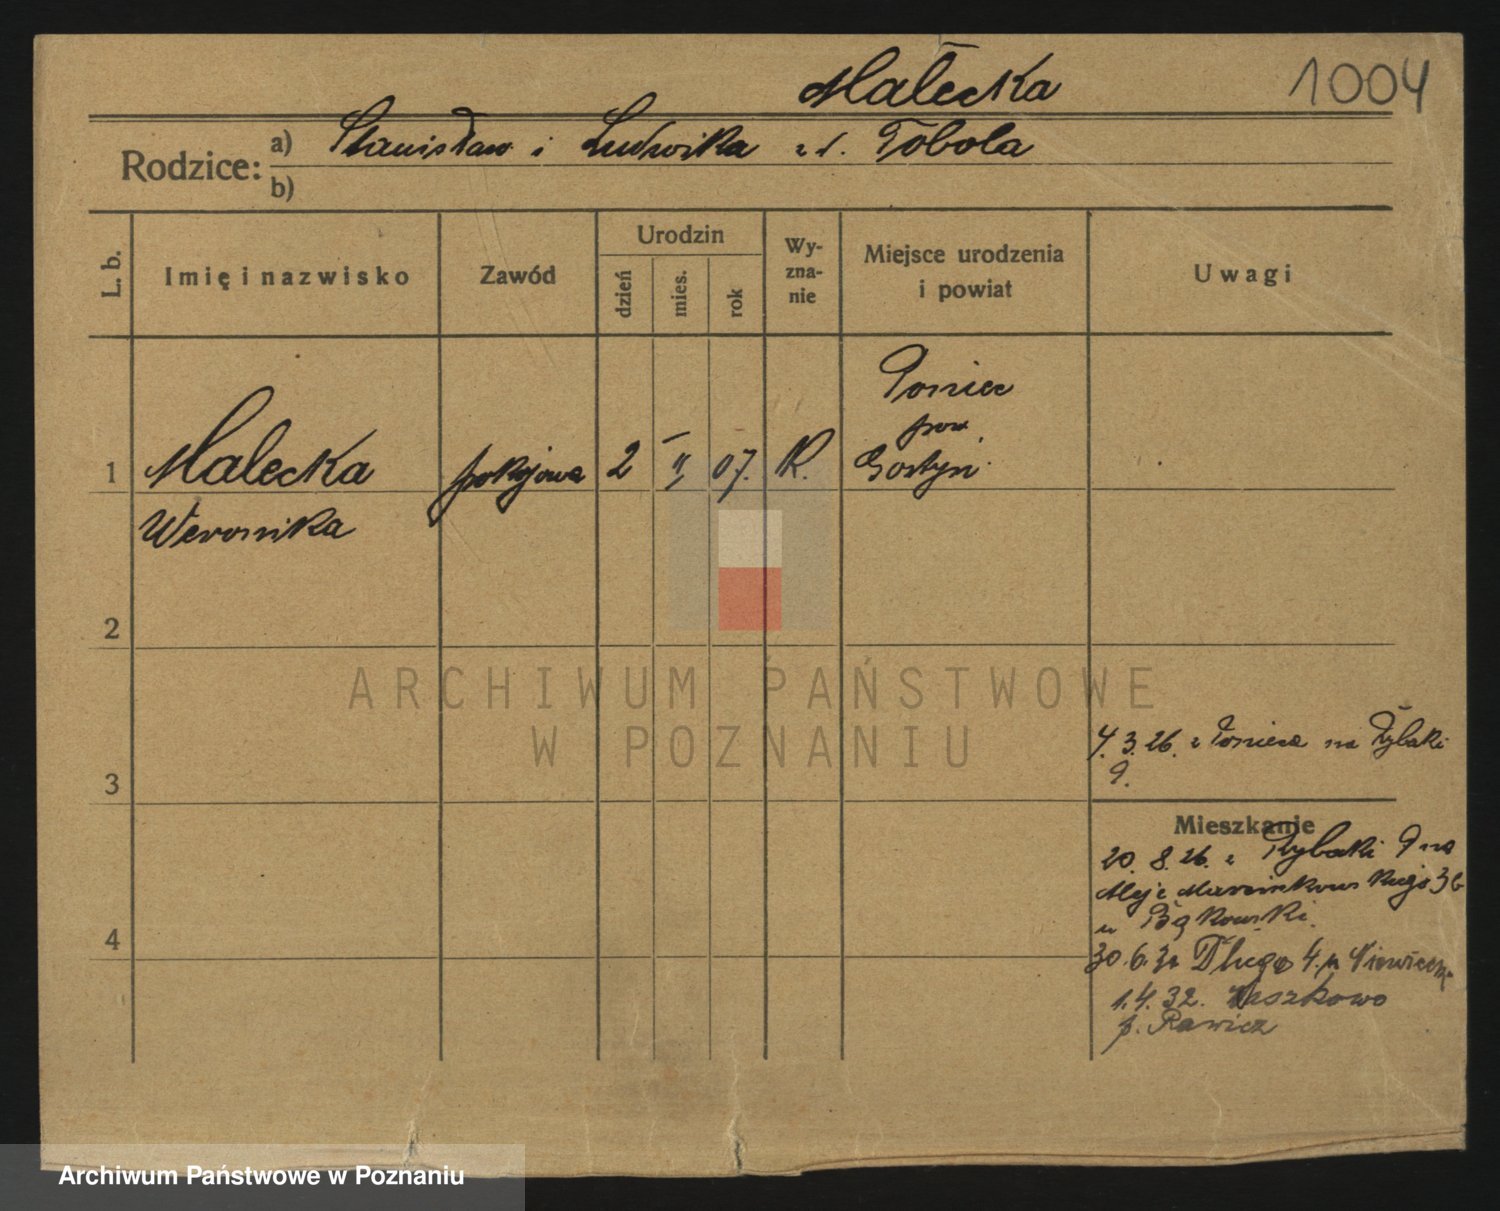 Małecka
1004
Rodzice:
a) Stanisław i Ludwika z d. Tobola
b)
L. b.
Imię i nazwisko
Zawód
Urodzin
dzień
mies.
rok
Wy-
zna-
nie
Miejsce urodzenia
i powiat
Uwagi
1
Małecka
Weronika
pokojowa
2
II
07.
K.
Poniec
pow.
Gostyń
2
3
4
4.3.26. z Ponieca na Rybaki
9.
Mieszkanie
20.8.26. z Rybaki 9 na
Aleje Marcinkowskiego 3b
u Bąkowski.
30.6.31 Długa 4. u
1.4.32.
p. Rawicz
ARCHIWUM PAŃSTWOWE
W POZNANIU
Archiwum Państwowe w Poznaniu